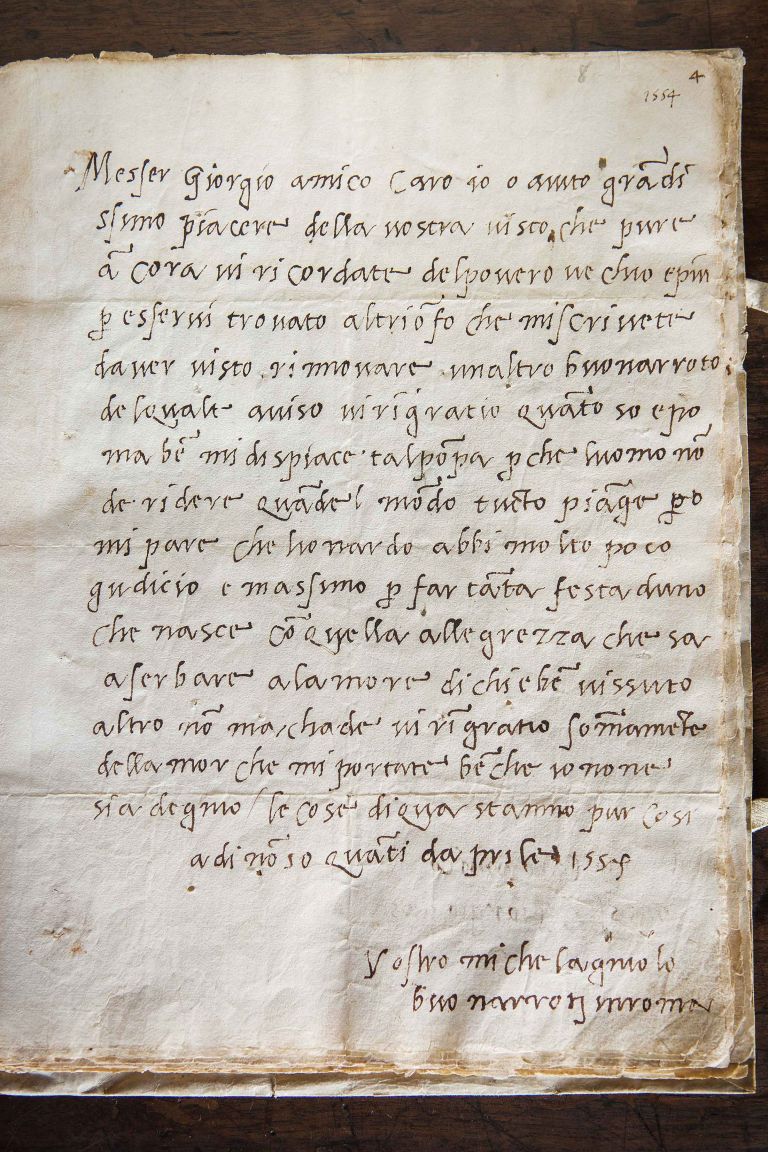 8
4
1554
Messer Giorgio amico caro io o auto grãdi
ssimo piacere della vostra visto che pure
ã cora vi ricordate delpovero vechio e piu
p̱ esservi trovato altriõfo che miscrivete
daver visto rinnovare unaltro buonarroto
delquale aviso virĩgratio quãto so e po
ma bẽ mi dispiace talpõpa p̱che luomo nõ
de ridere quãdel mõdo tucto piãge p̱o
mi pare che lionardo abbi molto poco
gudicio e massimo p̱ far tãta festa duno
che nasce cõ quella allegrezza che sa
a serbare alamore di chi e bẽ vissuto
altro nõ machade vi rĩgratio sommamẽte
dellamor che mi portate bẽche io none
sia degnio / le cose di qua stanno pur cosi
adi nõ so quãti daprile 155
Vostro michelagniolo
buonarroti in roma